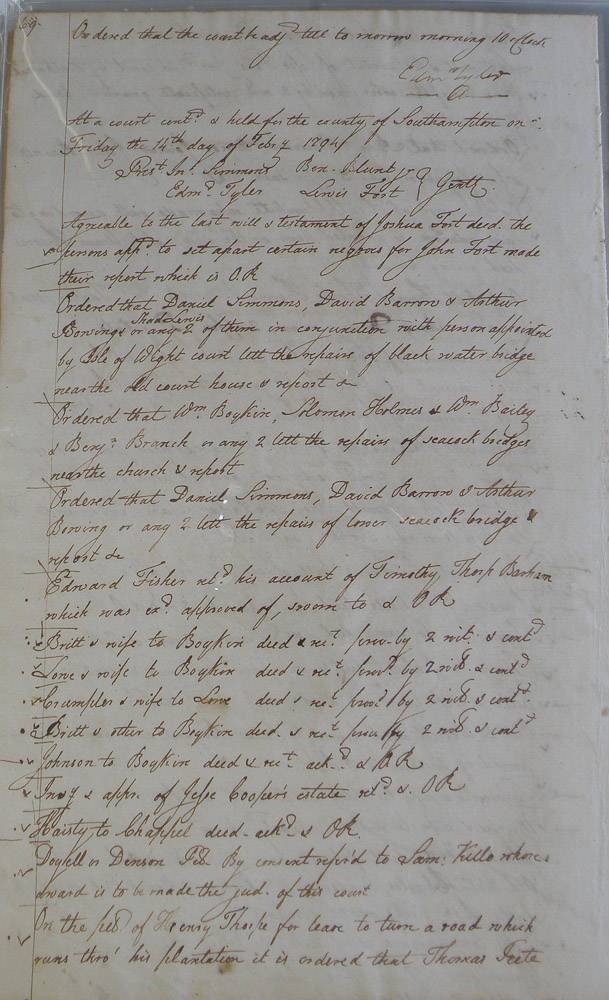 69.
Ordered that the court be adjd till to morrow morning 10 oClock
Edmd Tyler
At a court contd & held for the county of Southampton on
Friday the 14th day of Feby 1794
Prest Jno. Simmons Ben. Blunt jr
Edmd. Tyler Lewis Fort } Gentl.
Agreeable to the last will & testament of Joshua Fort decd. the
persons appd. to set apart certain negroes for John Fort made
their report which is OR
Ordered that Daniel Simmons, David Barrow & Arthur
Shade Lewis
Bowing or any 2 of them in conjunction with person appointed
by Isle of Wight court lett the repairs of black water bridge
near the old court house & report &c
Ordered that Wm. Boykin, Solomon Holmes & Wm. Bailey
& Benjn Branch or any 2 lett the repairs of seacock bridges
near the church & report
Ordered that Daniel Simmons, David Barrow & Arthur
Bowing or any 2 lett the repairs of lower seacock bridge &
report &c
Edward Fisher retd. his account of Timothy Thorp Barham
which was exd. approved of, sworn to & OR
Britt & wife to Boykin deed & rect. prov. by 2 wit. & contd
Love & wife to Boykin deed & rect. provd. by 2 wits. & contd
Crumpler & wife to Love deed & rect. provd by 2 wits. & contd.
Britt & other to Boykin deed. & rect. prov by 2 wits. & contd
Johnson to Boykin deed & rect. ackd. & OR
Invy & appr. of Jesse Cooper's estate retd. &. OR
Haisty to Chappel deed. ackd. & OR.
Doyell vs Denson Ped. By consent refer'd to Sam: Kello whose
award is to be made the jud. of this court
On the petd of Henry Thorpe for leave to turn a road which
runs thro' his plantation it is ordered that Thomas Feete